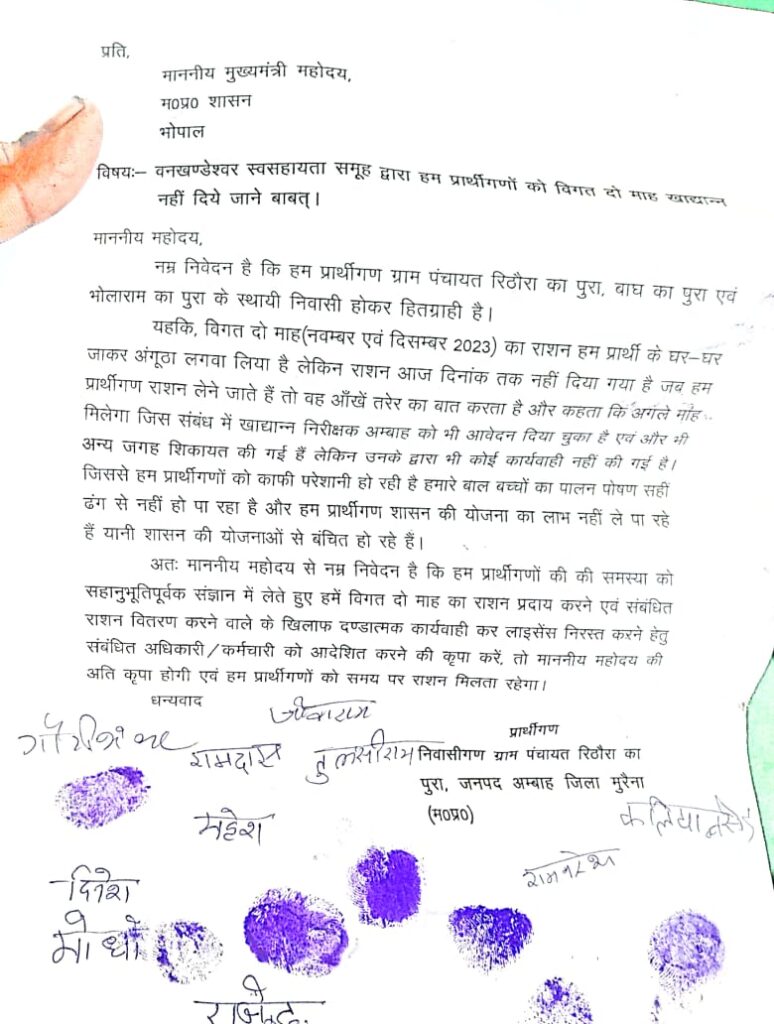 प्रति,
माननीय मुख्यमंत्री महोदय,
म0प्र0 शासन
भोपाल
विषयः– वनखण्डेश्वर स्वसहायता समूह द्वारा हम प्रार्थीगणों को विगत दो माह खाद्यान्न
नहीं दिये जाने बाबत्।
माननीय महोदय,
नम्र निवेदन है कि हम प्रार्थीगण ग्राम पंचायत रिठौरा का पुरा, बाघ का पुरा एवं
भोलाराम का पुरा के स्थायी निवासी होकर हितग्राही है।
यहकि, विगत दो माह(नवम्बर एवं दिसम्बर 2023) का राशन हम प्रार्थी के घर–घर
जाकर अंगूठा लगवा लिया है लेकिन राशन आज दिनांक तक नहीं दिया गया है जब हम
प्रार्थीगण राशन लेने जाते हैं तो वह आँखें तरेर का बात करता है और कहता कि अगले माह
मिलेगा जिस संबंध में खाद्यान्न निरीक्षक अम्बाह को भी आवेदन दिया चुका है एवं और भी
अन्य जगह शिकायत की गई हैं लेकिन उनके द्वारा भी कोई कार्यवाही नहीं की गई है।
जिससे हम प्रार्थीगणों को काफी परेशानी हो रही है हमारे बाल बच्चों का पालन पोषण सहीं
ढंग से नहीं हो पा रहा है और हम प्रार्थीगण शासन की योजना का लाभ नहीं ले पा रहे
हैं यानी शासन की योजनाओं से बंचित हो रहे हैं।
अतः माननीय महोदय से नम्र निवेदन है कि हम प्रार्थीगणों की की समस्या को
सहानुभूतिपूर्वक संज्ञान में लेते हुए हमें विगत दो माह का राशन प्रदाय करने एवं संबंधित
राशन वितरण करने वाले के खिलाफ दण्डात्मक कार्यवाही कर लाइसेंस निरस्त करने हेतु
संबंधित अधिकारी/कर्मचारी को आदेशित करने की कृपा करें, तो माननीय महोदय की
अति कृपा होगी एवं हम प्रार्थीगणों को समय पर राशन मिलता रहेगा।
धन्यवाद
प्रार्थीगण
रामदास तुलसीराम निवासीगण ग्राम पंचायत रिठौरा का
पुरा, जनपद अम्बाह जिला मुरैना
(म0प्र0)
महेश
दिनेश